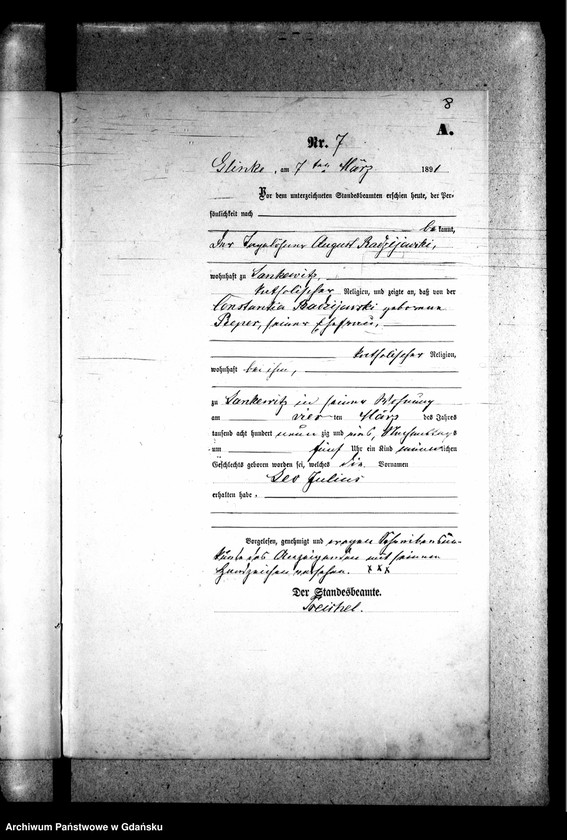 8
A.
Nr. 7
Glinke, am 7 ten März 1891
Vor dem unterzeichneten Standesbeamten erschien heute, der Per-
sönlichkeit nach
bekannt,
der Tagelöhner August Radzijewski,
wohnhaft zu Sankewitz,
katholischer Religion, und zeigte an, daß von der
Constantia Radzijewski geborene
Pieper, seiner Ehefrau,
katholischer Religion,
wohnhaft bei ihm,
zu Sankewitz in seiner Wohnung
am vier ten März des Jahres
tausend acht hundert neun zig und eins, Nachmittags
um fünf Uhr ein Kind männlichen
Geschlechts geboren worden sei, welches die Vornamen
Leo Julius
erhalten habe.
Vorgelesen, genehmigt und wegen Schreibensun-
kunde des Anzeigenden mit seinem
Handzeichen versehen. x x x
Der Standesbeamte.
Archiwum Państwowe w Gdańsku